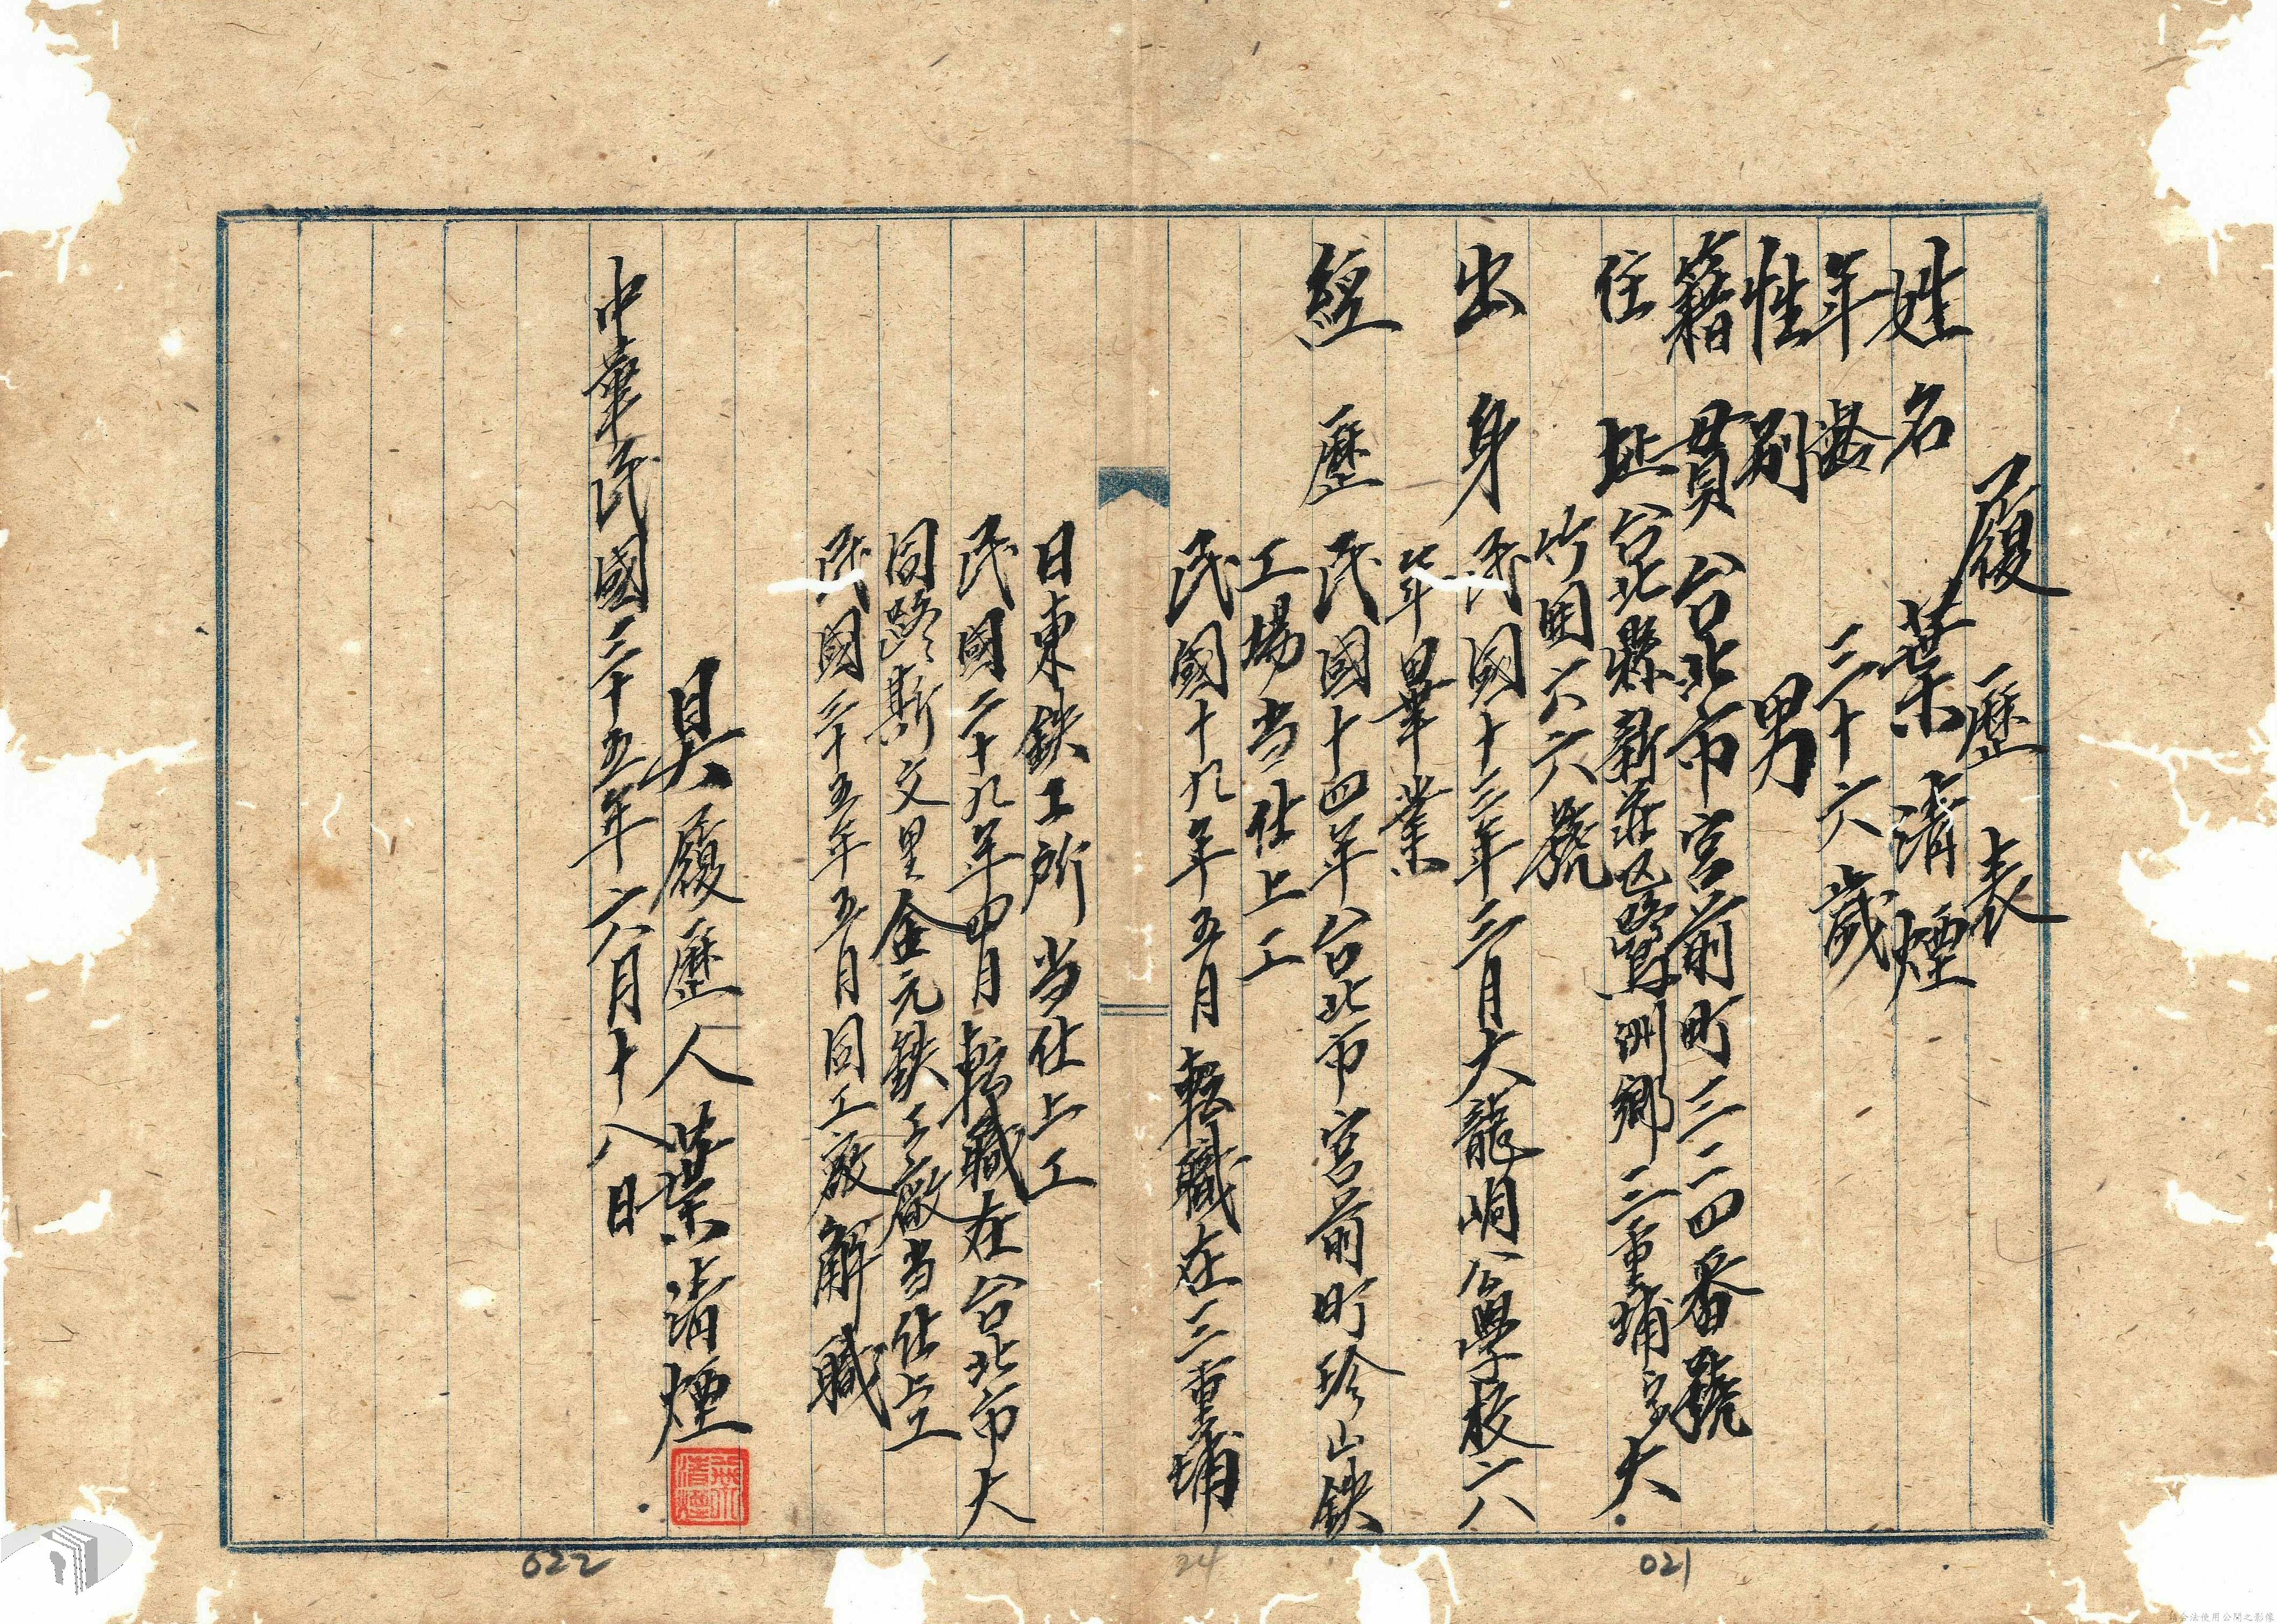 履歷表
姓名 葉清煙
年齡 三十六歲
性別 男
籍貫 台北市宮前町三二四番號
住址 台北縣新莊区鷺洲鄉三重埔字大
竹囲六六號
出身 民國十三年三月大龍峒公學校六
年畢業
經歷 民國十四年台北市宮前町珍山鉄
工場当仕上工
民國十九年五月転職在三重埔
日東鉄工所当仕上工
民國二十九年四月転職在台北市大
同路斯文里金元鉄工廠当仕上工
民國三十五年五月同工廠解職
具履歷人 葉清煙
葉清煙
中華民國三十五年六月十八日
021
24
022